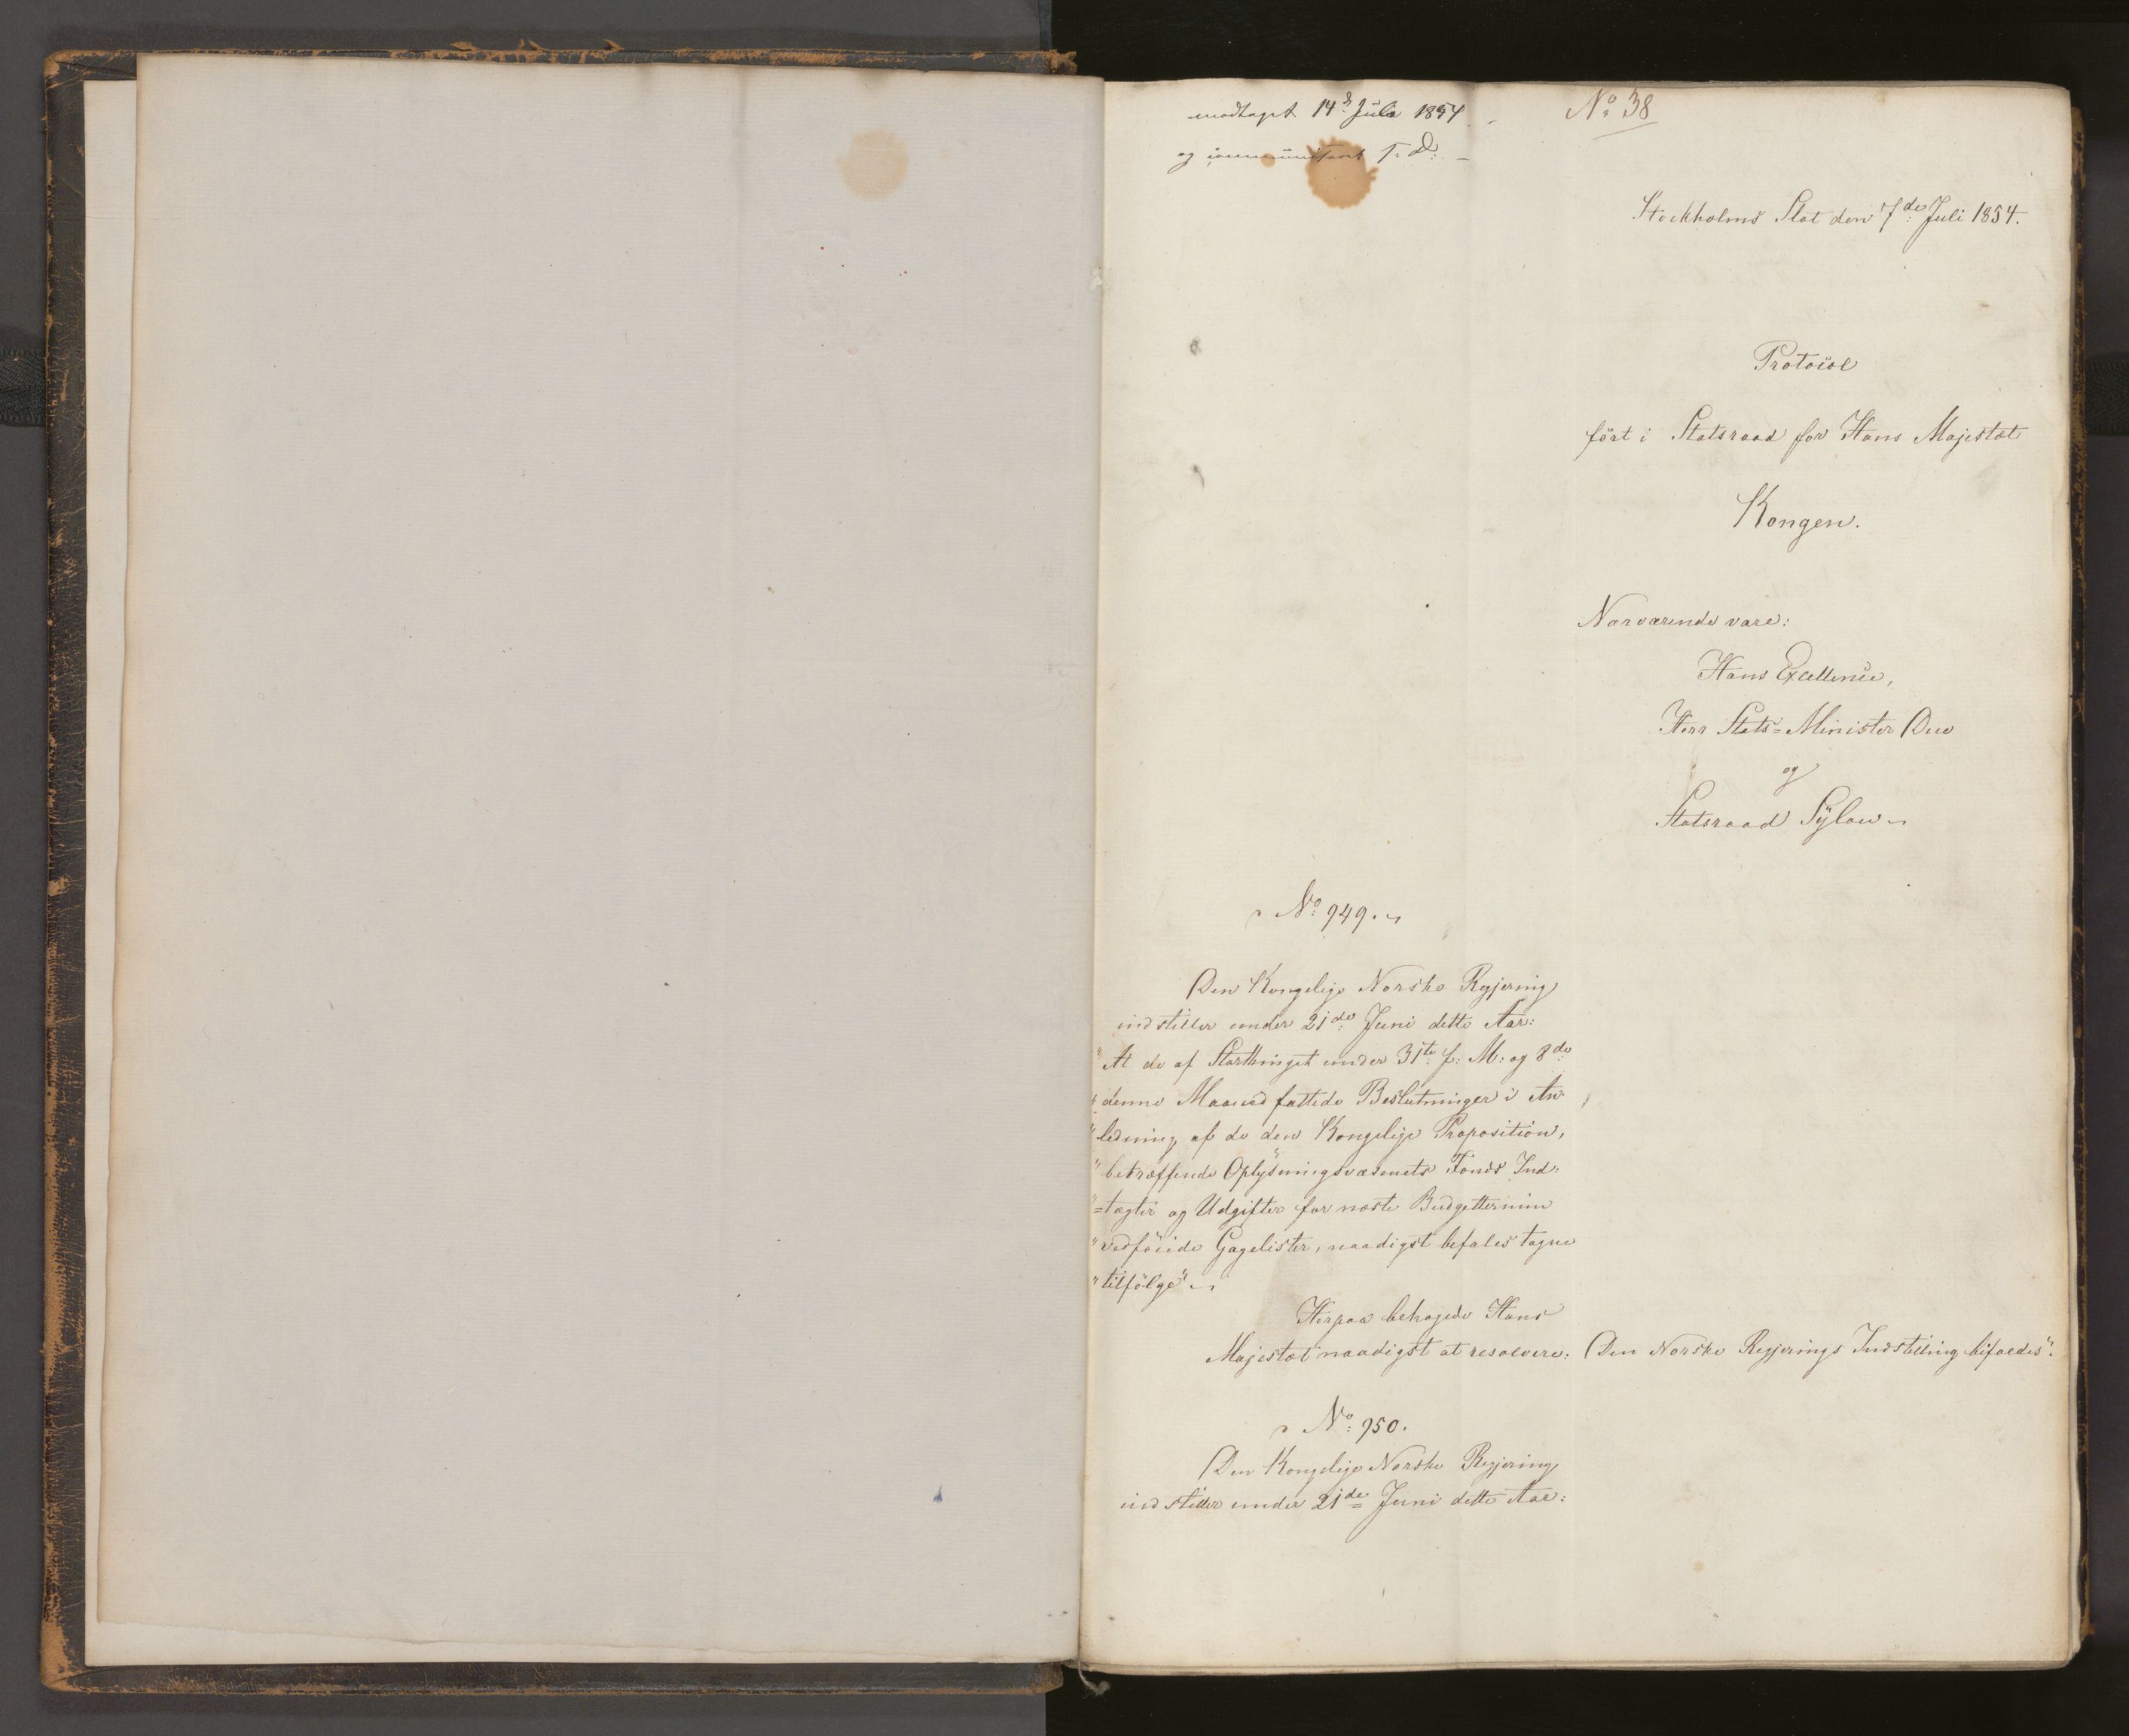 modtaget 14d Juli 1854
og communiceret s. D.
No 38
Stockholms Slot den 7de Juli 1854.
Protocol
fört i Statsraad for Hans Majestæt
Kongen.
Nærværende vare:
Hans Excellence,
Herr Stats-Minister Due
og
Statsraad Sylow
No 949.
Den Kongelige Norske Regjering
indstiller under 21de Juni dette Aar:
"At de af Storthinget under 31te f: M: og 8de
"denne Maaned fattede Beslutninger i An-
"ledning af de den Kongelige Proposition,
"betræffende Oplysningsvæsenets Fonds Ind-
"=tægter og Udgifter for næste Budgettermin
"vedföiede Gagelister, naadigst befales tagne
"tilfölge"
Herpaa behagede Hans
Majestæt naadigst at resolvere: Den Norske Regjerings Indstilling bifaldes".
No 950.
Den Kongelige Norske Regjering
indstiller under 21de Juni dette Aar: